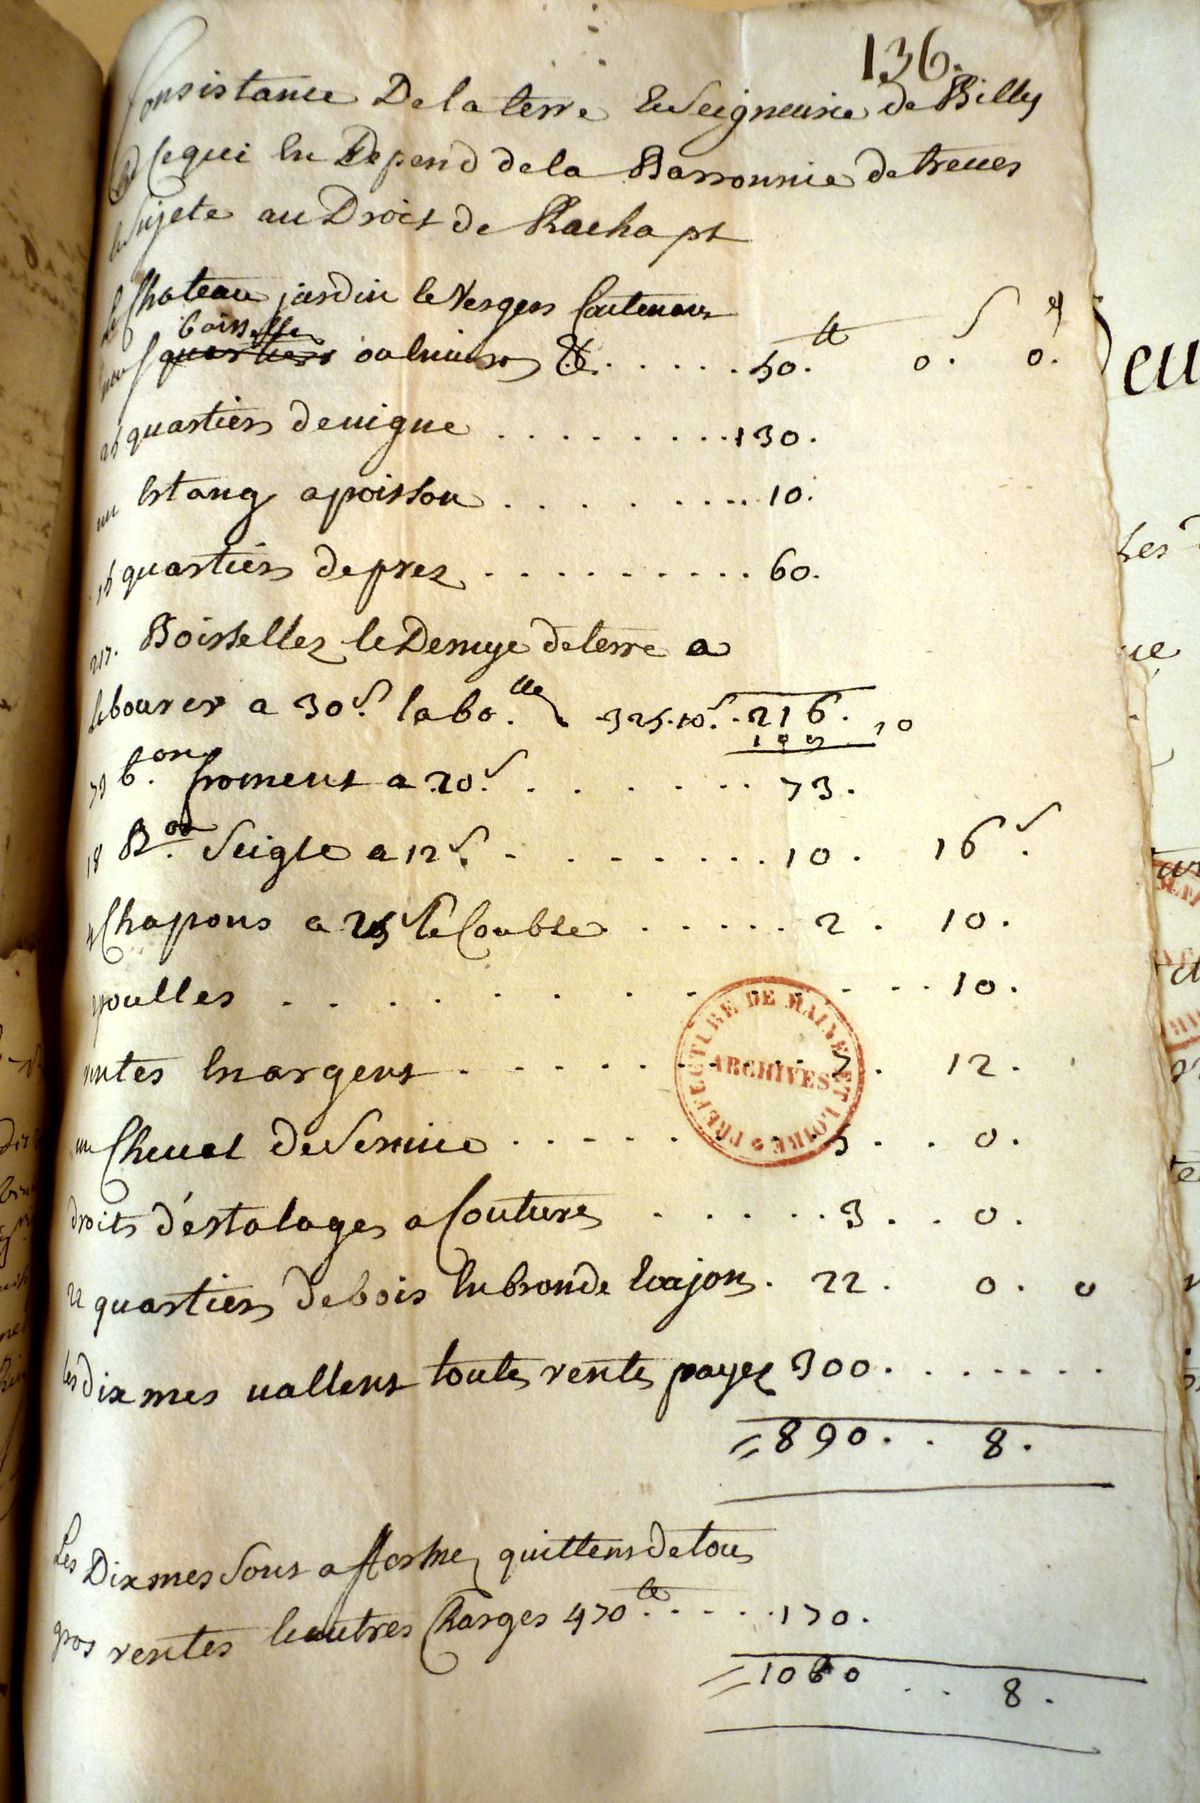 136.
Consistance De la terre & Seigneurie de Billy
Et Ce qui En Depend de la Barronnie de treues
& Sujete au Droit de Rachapt
Le Chateau jardin & Vergers Contenant
boisselles
neuf quartiers ou Enuiron &c. . . . . . 50.tt 0. s 0. d
26 quartiers de uigne . . . . . . . . . 130.
un Estang a poisson . . . . . . . . 10.
16 quartiers de prez . . . . . . . . . . 60.
217. Boisselles & Demye de terre a
Labourer a 30 s. la bo.lle 325.10 s. . 216. 10
109
73 b.on froment a 20 s. . . . . . . . 73.
18 B.on Seigle a 12 s. . . . . . . . 10. 16 s.
4 Chapons a 25 s le Couble . . . . . . 2. 10.
poulles . . . . . . . . . . . . 10.
rentes En argent . . . . . . . . 7. 12.
un Cheual de Seruice . . . . . . . 5. . 0.
droits d'estalages a Couture . . . . . . 3. . 0.
22 quartiers de bois En bronde & ajon . 22. 0. 0
les dixmes uallent toute rente payez 300. . . . . . .
= 890. . 8.
Les Dixmes Sont affermez quittens de tous
gros rentes & autres Charges 470 tt . . . . 170.
= 1060 . . 8.
PREFECTURE DE MAINE ET LOIRE
ARCHIVES